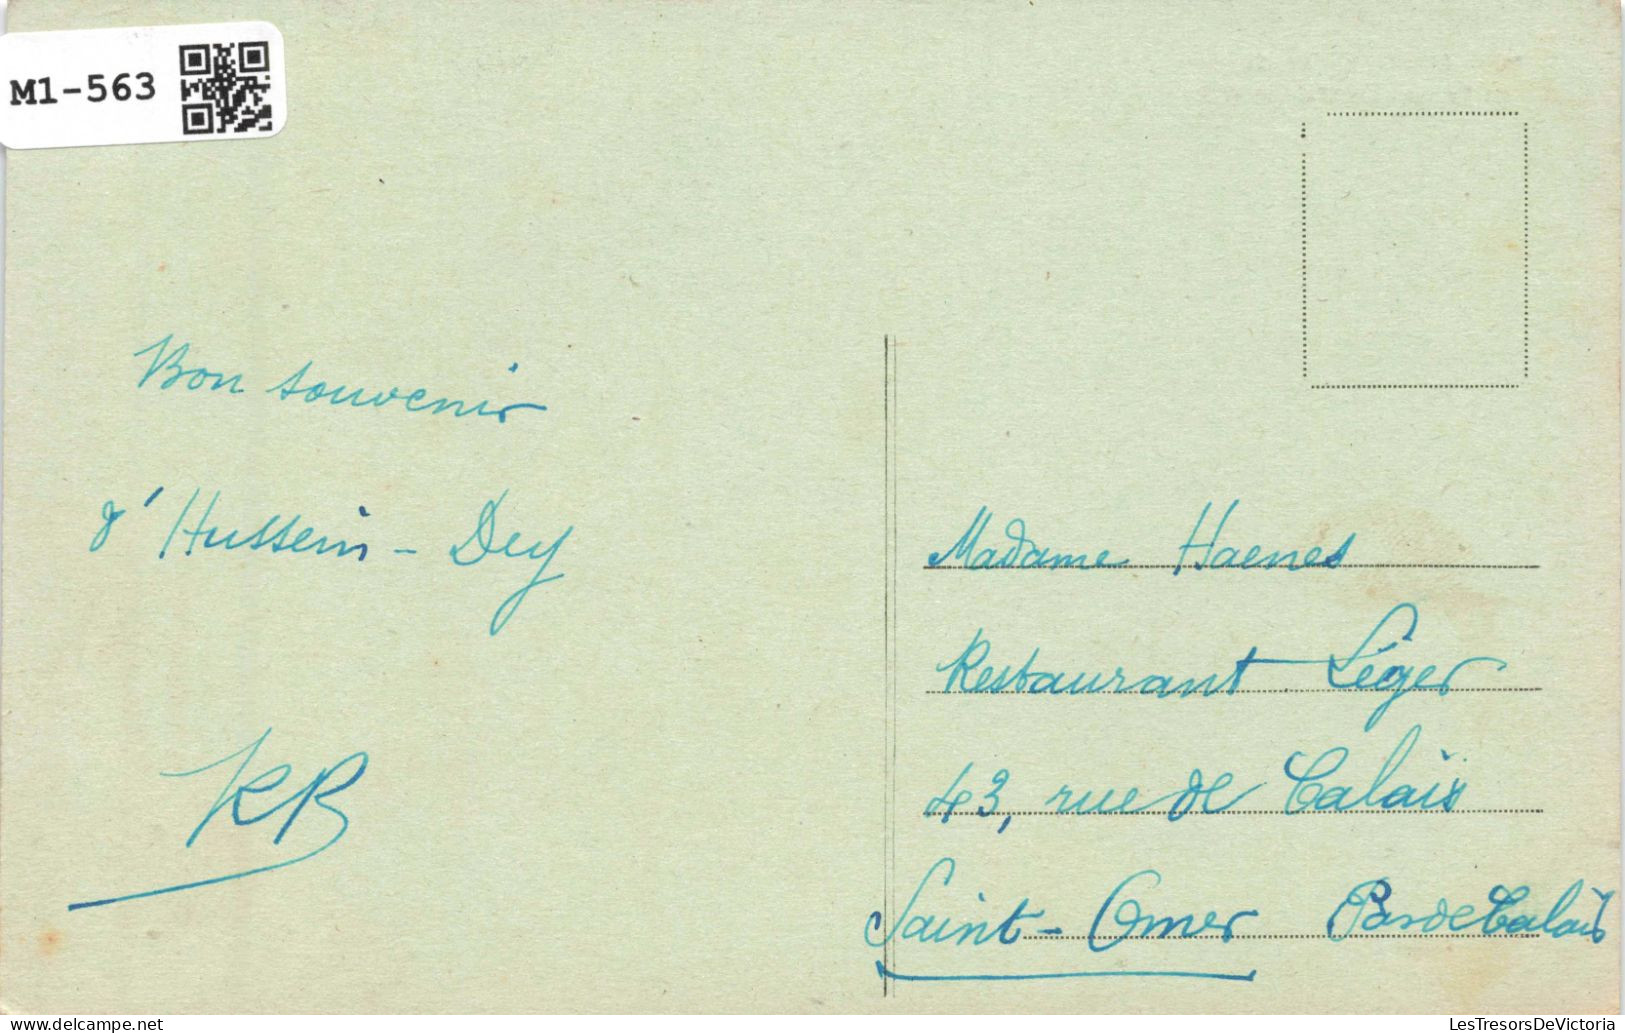 M1-563
Bon souvenir
d'Hussein-Dey
KB
Madame Haenes
Restaurant Léger
43, rue de Calais
Saint-Omer Pas de Calais
LesTresorsDeVictoria